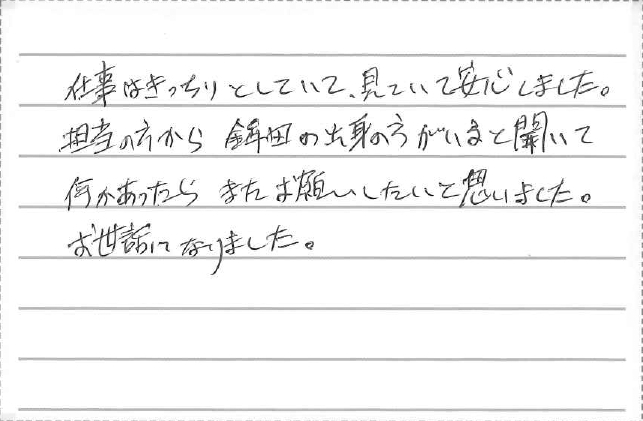 仕事はきっちりとしていて、見ていて安心しました。
担当の方から鉾田の出身の方がいると聞いて
何かあったらまたお願いしたいと思いました。
お世話になりました。